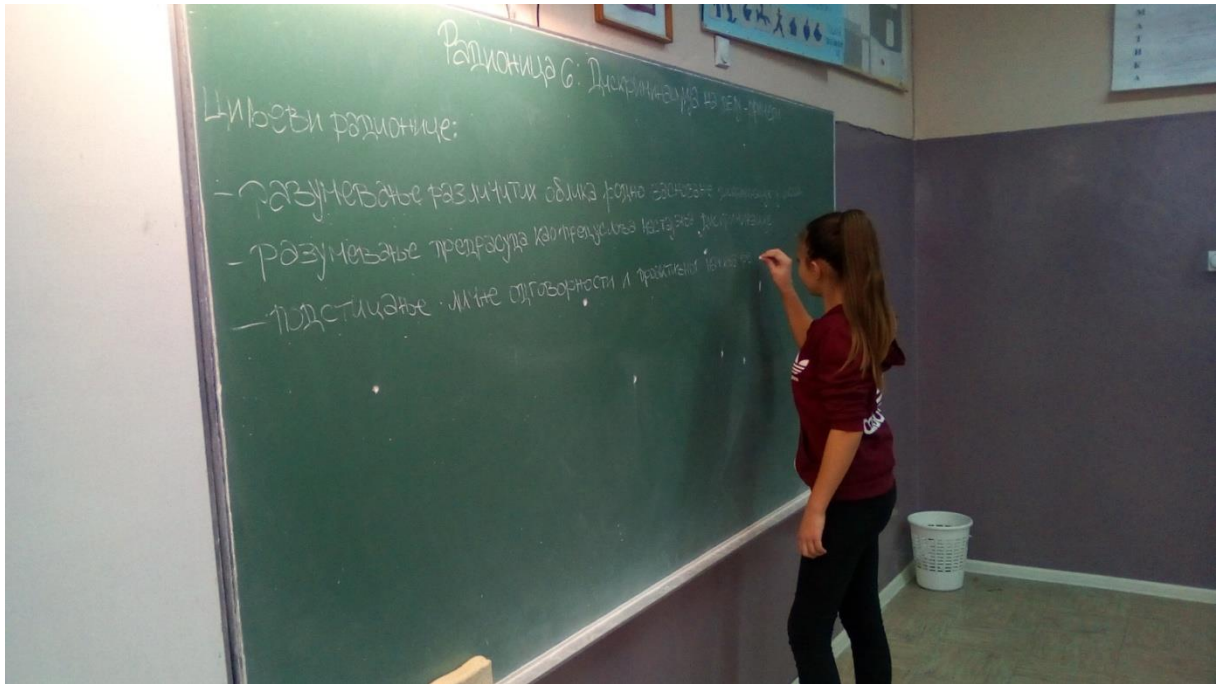 Радионица 6: Дискриминација на делу - примери
Циљеви радионице:
- разумевање различитих облика родно засноване дискриминације
- разумевање предрасуда као предуслова настајања дискриминације
- подстицање личне одговорности и проактивног
МАТИКА